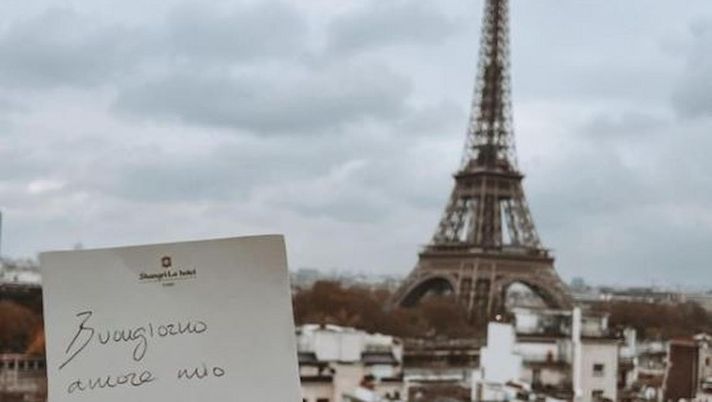 Shangri-La hotel
PARIS
Buongiorno
amore mio